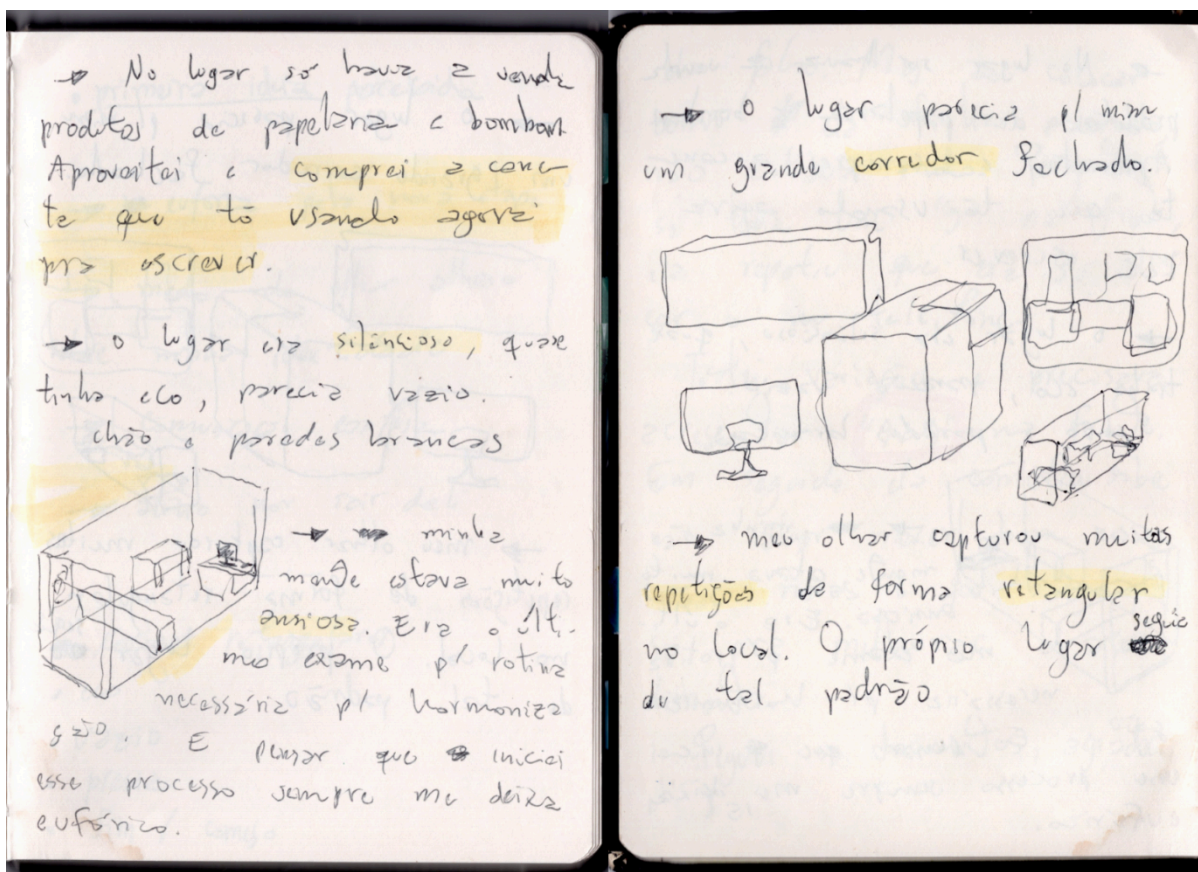 → No lugar só havia a venda
produtos de papelaria e bombom.
Aproveitei e comprei a cane-
ta que tô usando agora
pra escrever.
→ o lugar era silencioso, quase
tinha eco, parecia vazio.
chão e paredes brancas
→ minha
mente estava muito
ansiosa. Era o últi-
mo exame p/ rotina
necessária p/ harmoniza
ção. E pensar que iniciei
esse processo sempre me deixa
eufórico.
→ o lugar parecia p/ mim
um grande corredor fechado.
→ meu olhar capturou muitas
repetições de forma retangular
no local. O próprio lugar seguia
de tal padrão